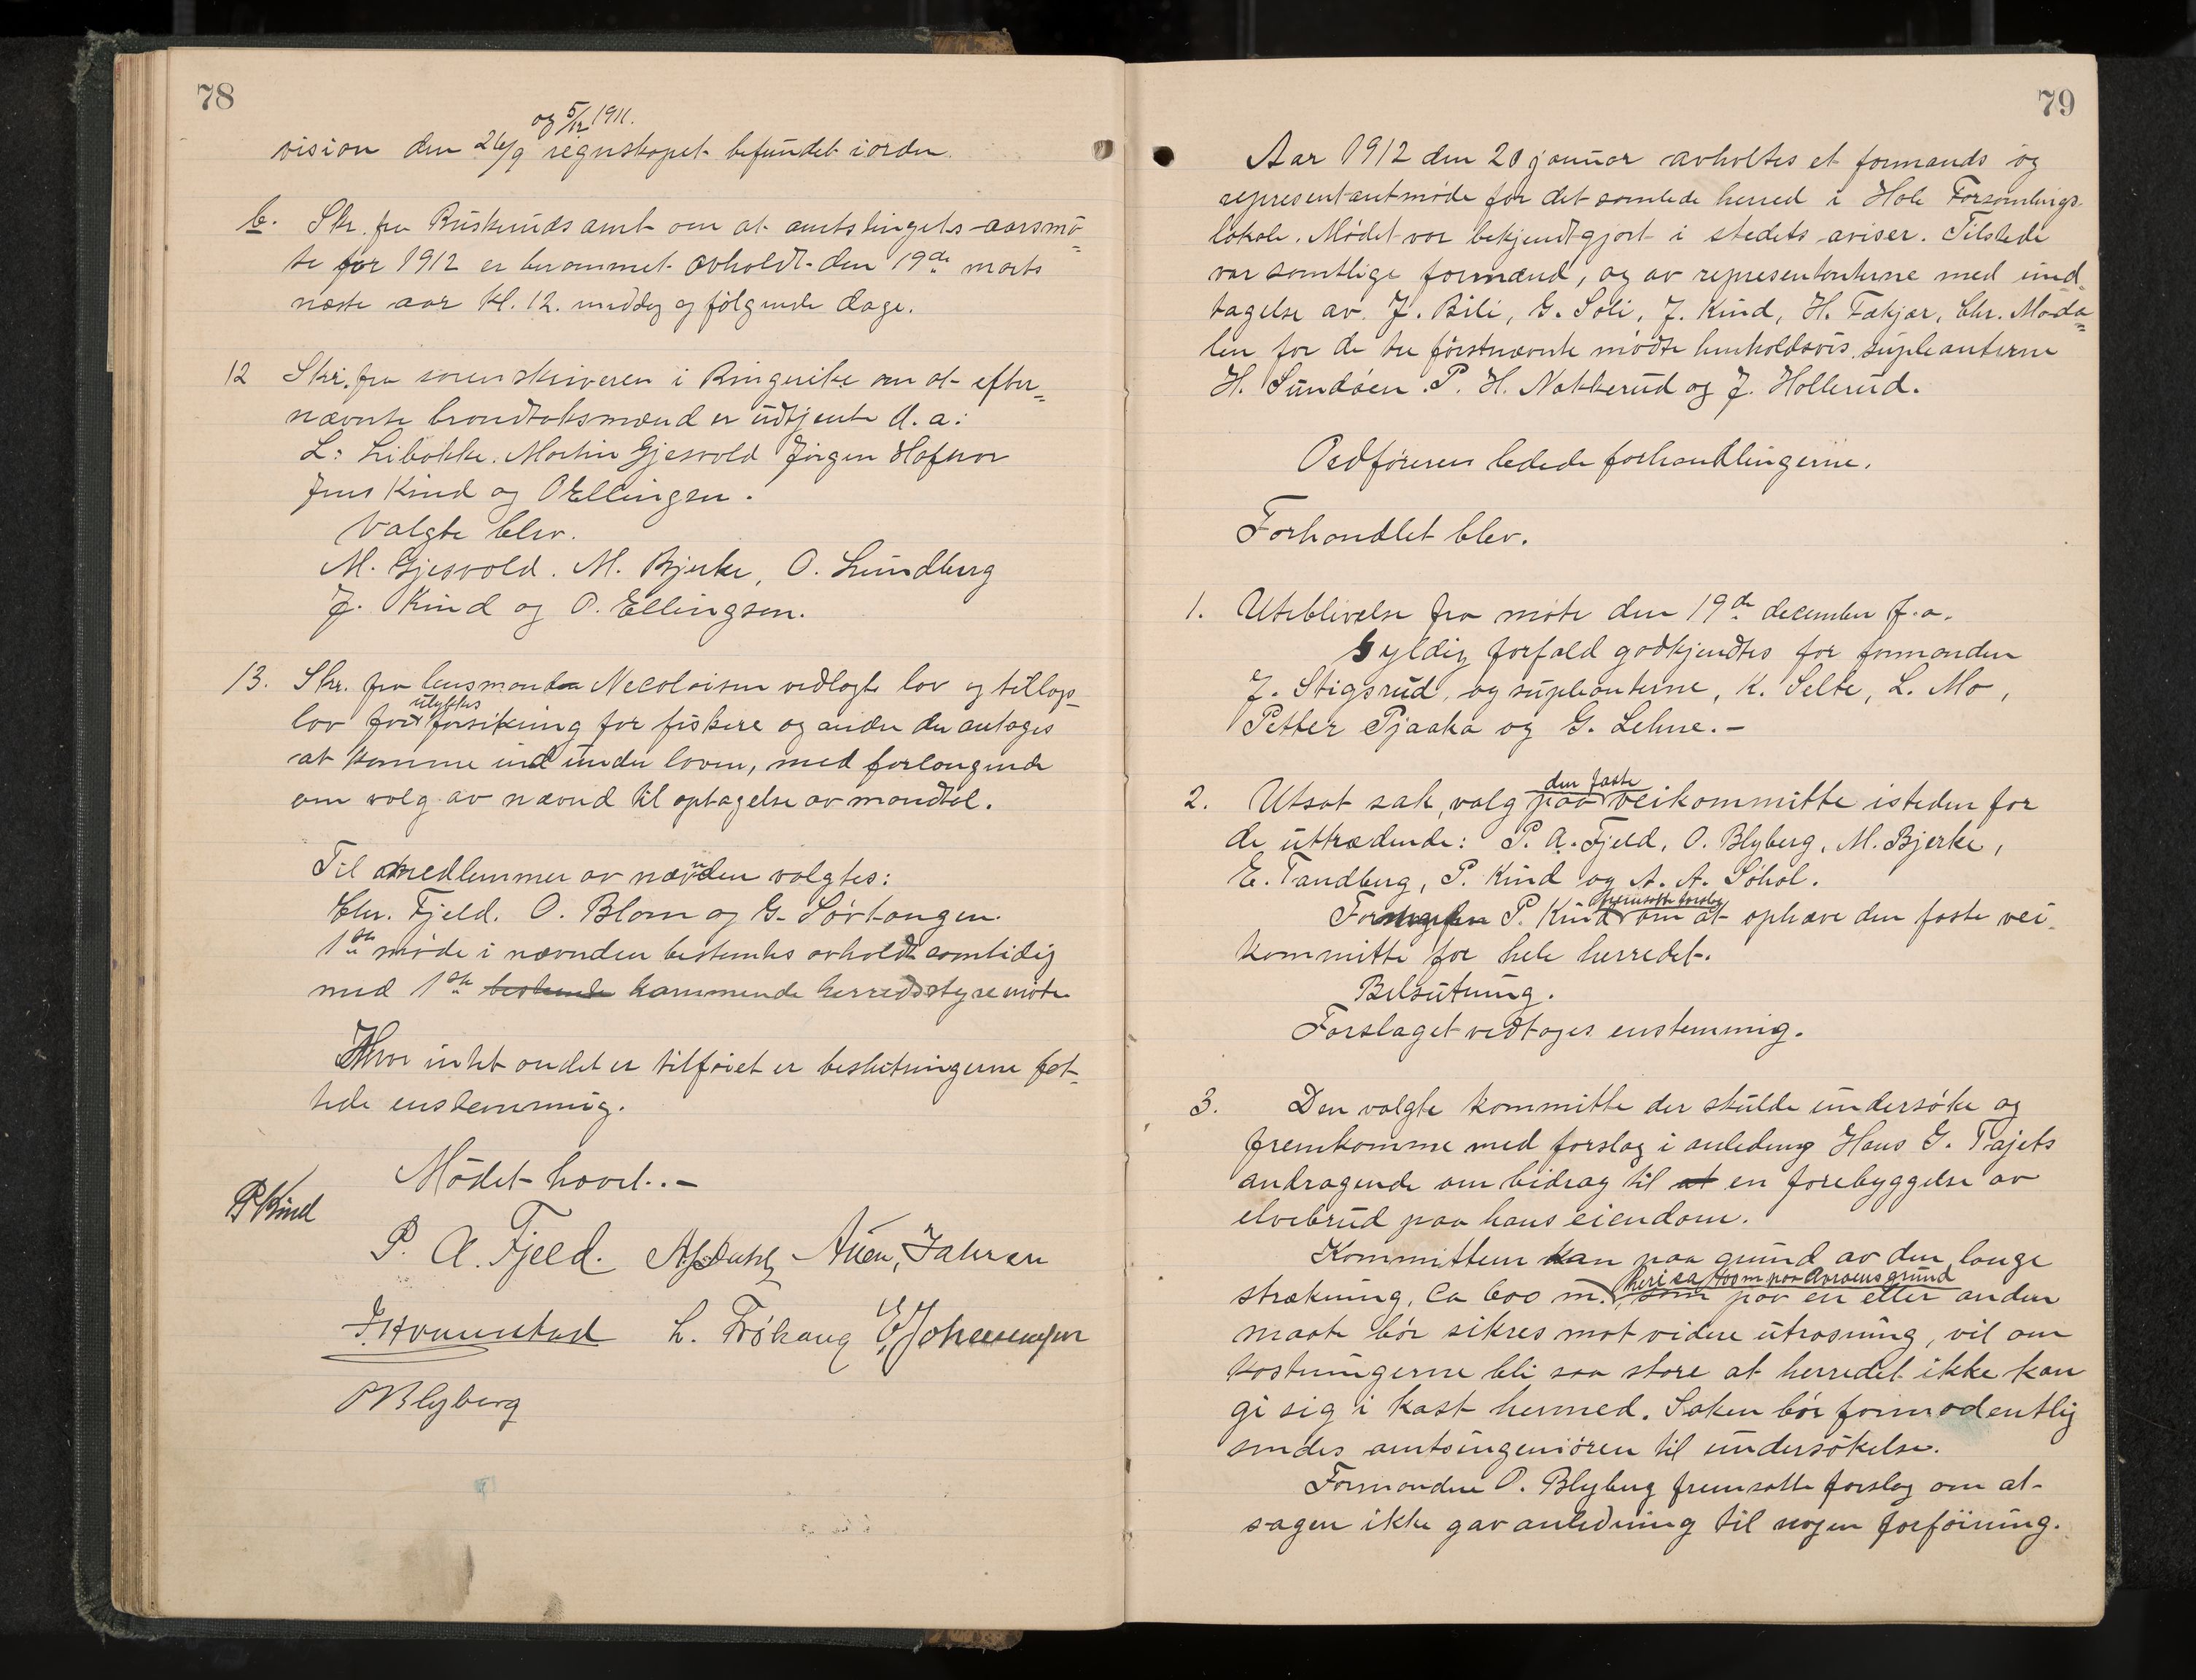 78
og 5/12 1911.
vision den 26/9 regnskapet befundet iorden.
b. Skr. fra Buskeruds amt om at amtstingets aarsmö=
te for 1912 er berammet avholdt den 19de marts
næste aar kl. 12. middag og følgende dage.
12 Skr. fra sorenskriveren i Ringerike om at efter=
nævnte brandtakstmænd er udtjente d. a:
L. Libakke. Martin Gjesvold Jørgen Hafnor
Jens Kind og O Ellingsen.
Valgte blev.
M. Gjesvold. M. Bjerke, O. Lundberg
J. Kind og O. Ellingsen.
13. Skr. fra lensmanden Necolaisen vedlagte lov og tillægs=
ulykkes
lov for forsikring for fiskere og andre der antages
at komme ind under loven, med forlangende
om valg av nævnd til optagelse av mandtal.
Til medlemmer av nævnden valgtes:
Chr. Fjeld. O. Blom og G. Sörtangen.
1ste møde i nævnden bestemtes avholdt samtidig
med 1ste kommende herredsstyremøte
Hvor intet andet er tilføiet er beslutningerne fat-
tede enstemmig.
Mödet hævet. -
P Kind
P. A. Fjeld.
L. Frøhaug E. Johannesen
O Blyberg
79
Aar 1912 den 20 januar avholtes et formands og
representantmøde for det samlede herred i Hole Forsamlings-
lokale. Mødet var bekjendtgjort i stedets aviser. Tilstede
var samtlige formænd, og av representanterne med und-
tagelse av J. Bili, G. Soli, J. Kind, H. Fækjær, Chr. Moda=
len for de tre förstnævnte mødte henholdsvis supleanterne
H. Sundöen. P. H. Nakkerud og J. Hollerud.
Ordføreren ledede forhandlingerne.
Forhandlet blev.
1. Uteblivelse fra møte den 19de december f. a.
Gyldig forfald godkjendtes for formanden
J. Stigsrud, og supleanterne, K. Selte, L. Mo,
Petter Pjaaka og G. Lehne. -
den faste
2. Utsat sak, valg paa veikommitte isteden for
de uttrædende: P. A. Fjeld, O. Blyberg, M. Bjerke,
E. Tandberg, P. Kind og A. A. Søhol.
fremsatte forslag
P. Kind om at ophæve den faste vei-
kommitte for hele herredet.
Belsutning.
Forslaget vedtoges enstemmig.
3. Den valgte kommitte der skulde undersøke og
fremkomme med forslag i anledning Hans G. Trøjets
andragende om bidrag til at en forebyggelse av
elvebrud paa hans eiendom.
Kommitteen kan paa grund av den lange
heri ca 400 m paa grund
strækning, ca 600 m. som paa en eller anden
maate bør sikres mot videre utrasning, vil om
kostningerne bli saa store at herredet ikke kan
gi sig i kast hermed. Saken bør formodentlig
sendes amtsingeniören til undersøkelse.
Formanden O. Blyberg fremsatte forslag om at
sagen ikke gav anledning til nogen forföining.